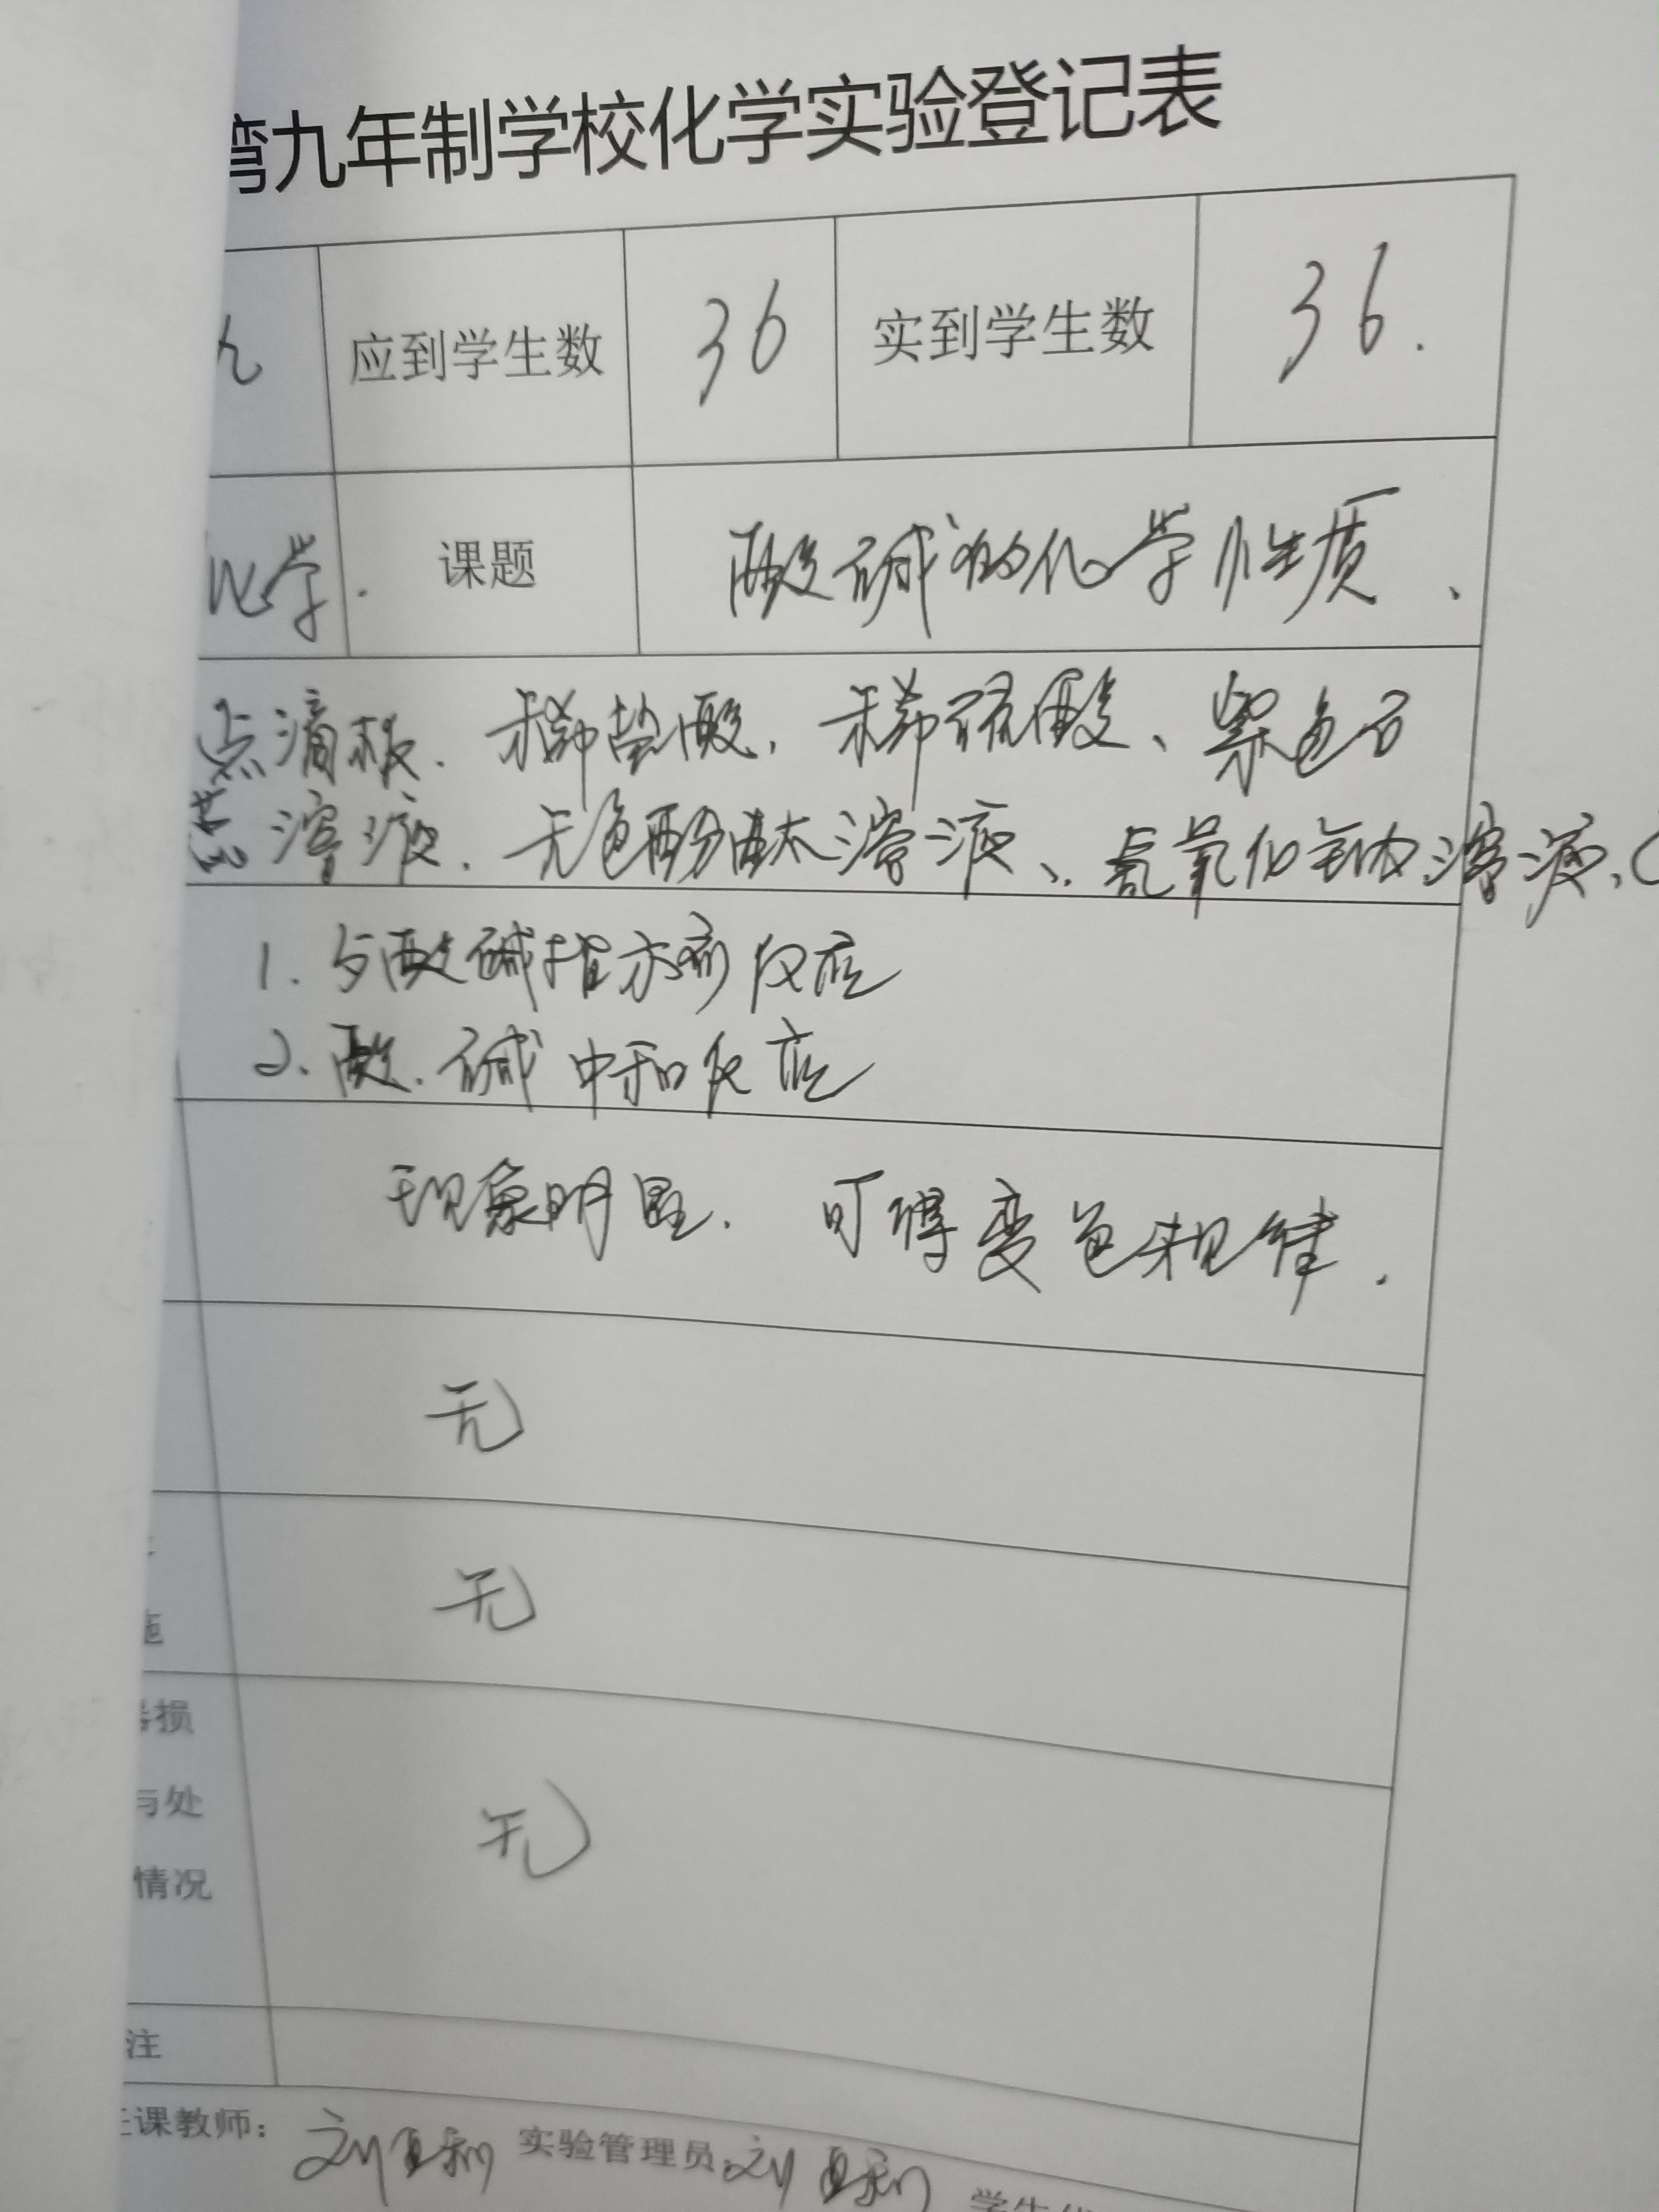 湾九年制学校化学实验登记表
九 应到学生数 36 实到学生数 36.
化学. 课题 酸碱的化学性质、
点滴板、稀盐酸、稀硫酸、紫色石
蕊溶液、无色酚酞溶液、氢氧化钠溶液、
1. 与酸碱指示剂反应
2. 酸、碱中和反应
现象明显. 可得变色规律.
无
无
施
损
与处
情况
无
注
课教师: 刘 实验管理员: 刘
学生